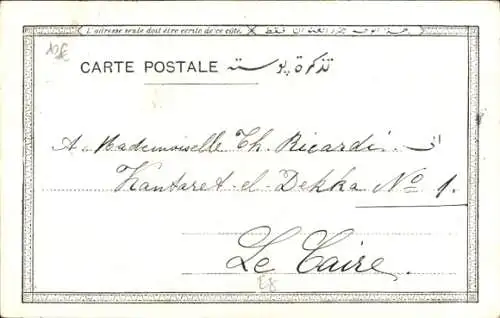 L'adresse seule doit être écrite de ce côté.
CARTE POSTALE تذكرة پوسته
A Mademoiselle Th. Ricardi
Kantaret-el-Dekka No 1.
Le Caire.